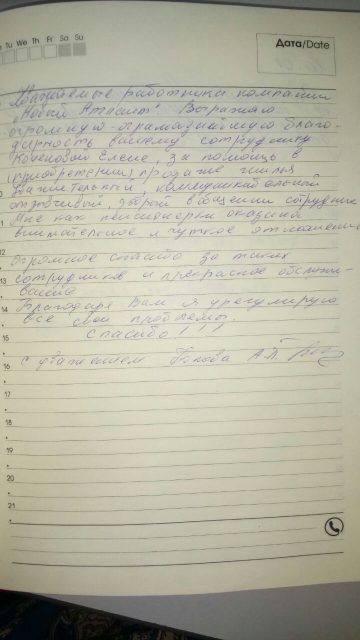 Tu We Th Fr Sa Su
Дата/Date
Уважаемые работники компании
"Новый Атлант". Выражаю
огромную-огромаднейшую благо-
дарность вашему сотруднику
Елене, за помощь в
(приобретении) продаже жилья
Уважительный, коммуникабельный
отзывчивый, добрый в общении сотрудник
Мне как пенсионерке оказано
внимательное и чуткое отношение
12
Огромное спасибо за таких
13
сотрудников и прекрасное обслужи-
вание
14
Благодаря Вам я урегулирую
все свои проблемы.
15
Спасибо!!!
16
С уважением А.П.
17
18
19
20
21